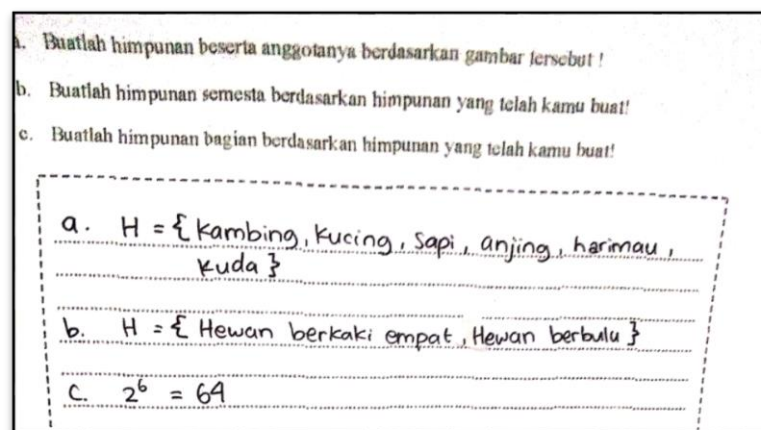 a. Buatlah himpunan beserta anggotanya berdasarkan gambar tersebut !
b. Buatlah himpunan semesta berdasarkan himpunan yang telah kamu buat!
c. Buatlah himpunan bagian berdasarkan himpunan yang telah kamu buat!
a. H = { Kambing, Kucing, Sapi, anjing, harimau,
Kuda }
b. H = { Hewan berkaki empat, Hewan berbulu }
C. 2⁶ = 64